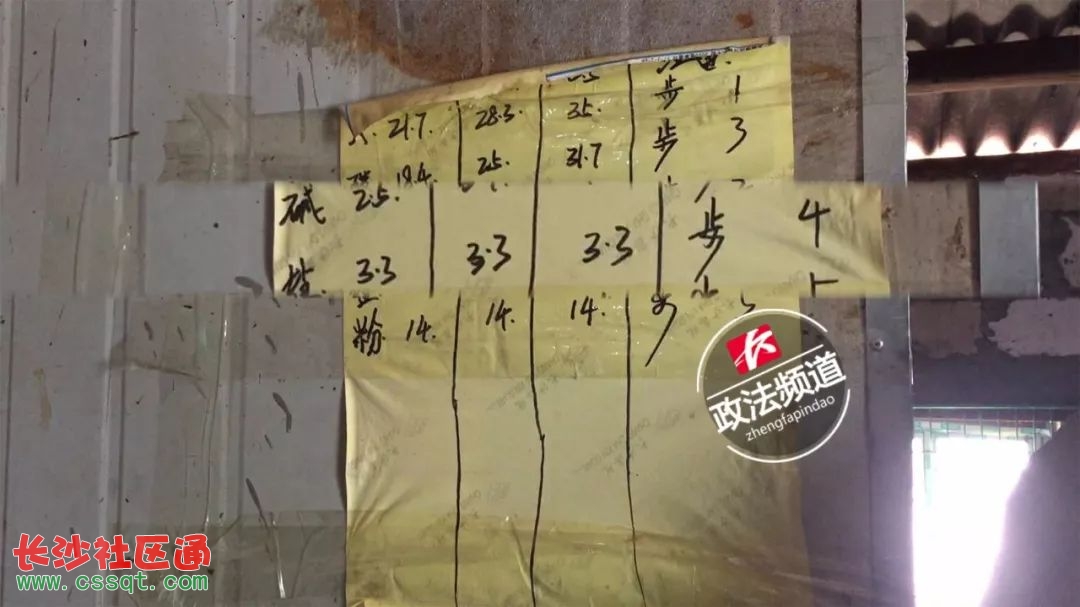 21.7. 28.3. 35. 步 1
18.4. 25. 31.7 步 3
碱 2.5.
3.3 3.3 3.3 步 4
粉 14. 14. 14.
政法频道
zhengfapindao
长沙社区通
www.cssqt.com